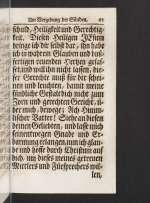 Um Vergebung der Sünden. 61
schuld, Heiligkeit und Gerechtig-
keit. Diesen Heiligen
bringe ich dir selbst dar, ihn habe
ich in wahrem Glauben und buß-
fertigen reuenden Hertzen gefas-
set, und will ihn nicht lassen, die-
ser Gerechte muß für dir schei-
nen und leuchten, damit meine
sündliche Gestalt dich nicht zum
Zorn und gerechten Gericht, ü-
ber mich, beweget. Ach Himm-
lischer Vatter! Siehe an diesen
deinen Geliebten, und lasse mich
seinentwegen Gnade und Er-
barmung erlangen, nun ich glau-
be und hoffe durch Christum auf
dich, um dieses meines getreuen
Mittlers und Fürsprechers wil-
len,